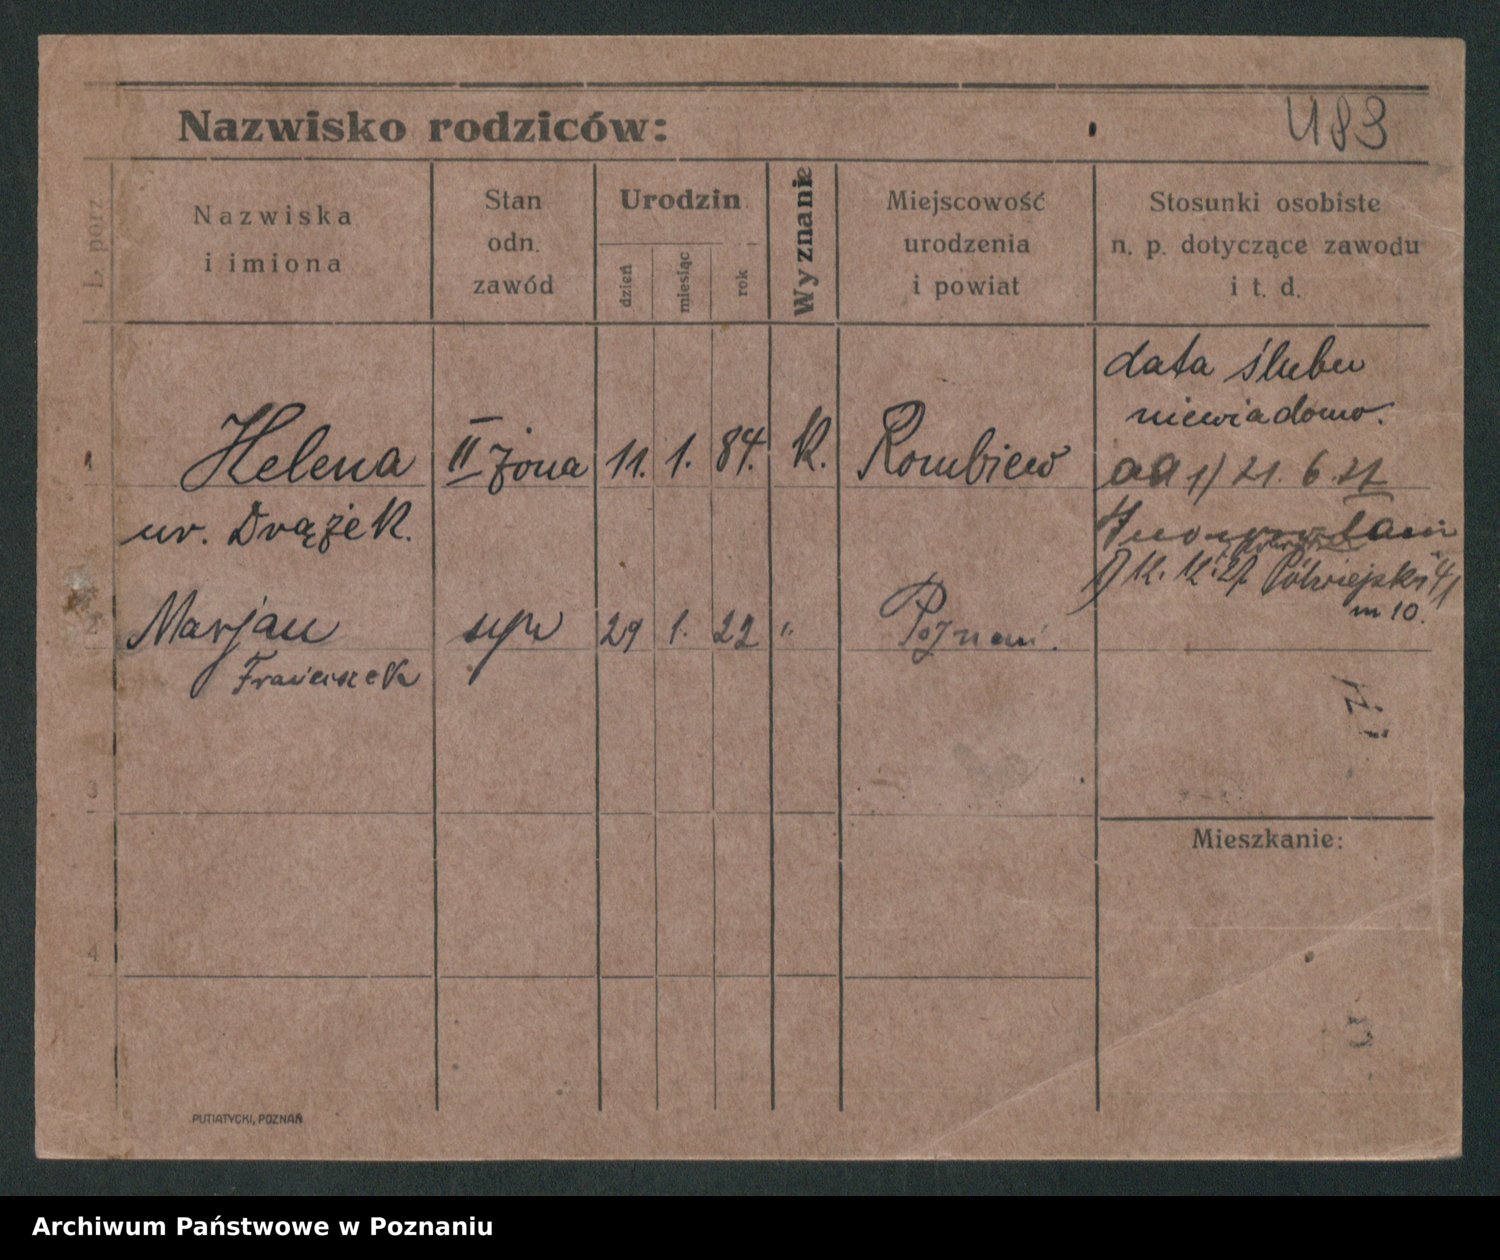 Nazwisko rodziców:
483
L. porz.
Nazwiska
i imiona
Stan
odn.
zawód
Urodzin
dzień
miesiąc
rok
Wyznanie
Miejscowość
urodzenia
i powiat
Stosunki osobiste
n. p. dotyczące zawodu
i t. d.
data ślubu
niewiadomo.
1 Helena II żona 11. 1. 84. K. Rombiew
ur. Drążek.
ad 1) 21. 6.
Półwiejska 41
m 10.
2 Marjan syn 29 1. 22 " Poznań.
Franciszek
3
Mieszkanie:
4
PUTIATYCKI, POZNAŃ
Archiwum Państwowe w Poznaniu